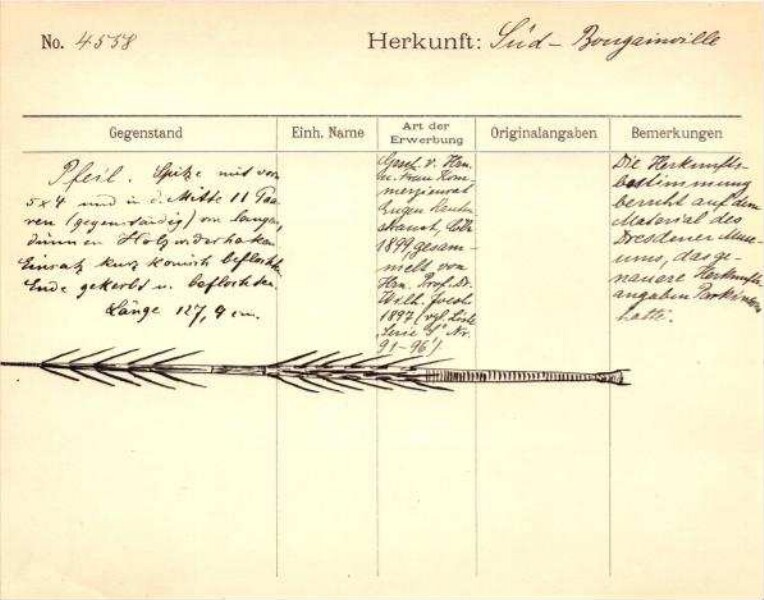 No. 4558 Herkunft: Süd- Bougainville
Gegenstand
Einh. Name
Art der
Erwerbung
Originalangaben
Bemerkungen
Pfeil. Spitze mit vorn
5 x 4 und in d. Mitte 11 Paa-
ren (gegenständig) von langen,
dünnen Holzwiderhaken.
Einsatz kurz konisch beflochten
Ende gekerbt u. beflochten.
Länge 127,9 cm.
Gesch. v. Hrn.
u. Frau Kom-
merzienrat
Eugen
1899, gesam-
melt von
Hrn. Prof. Dr.
Wilh. Joest
1897 (vgl. Liste
"Serie S" Nr.
91-96)
Die Herkunfts-
bestimmung
beruht auf dem
Material des
Dresdener Muse-
ums, das ge-
nauere Herkunfts-
angaben Parkinsons
hatte.